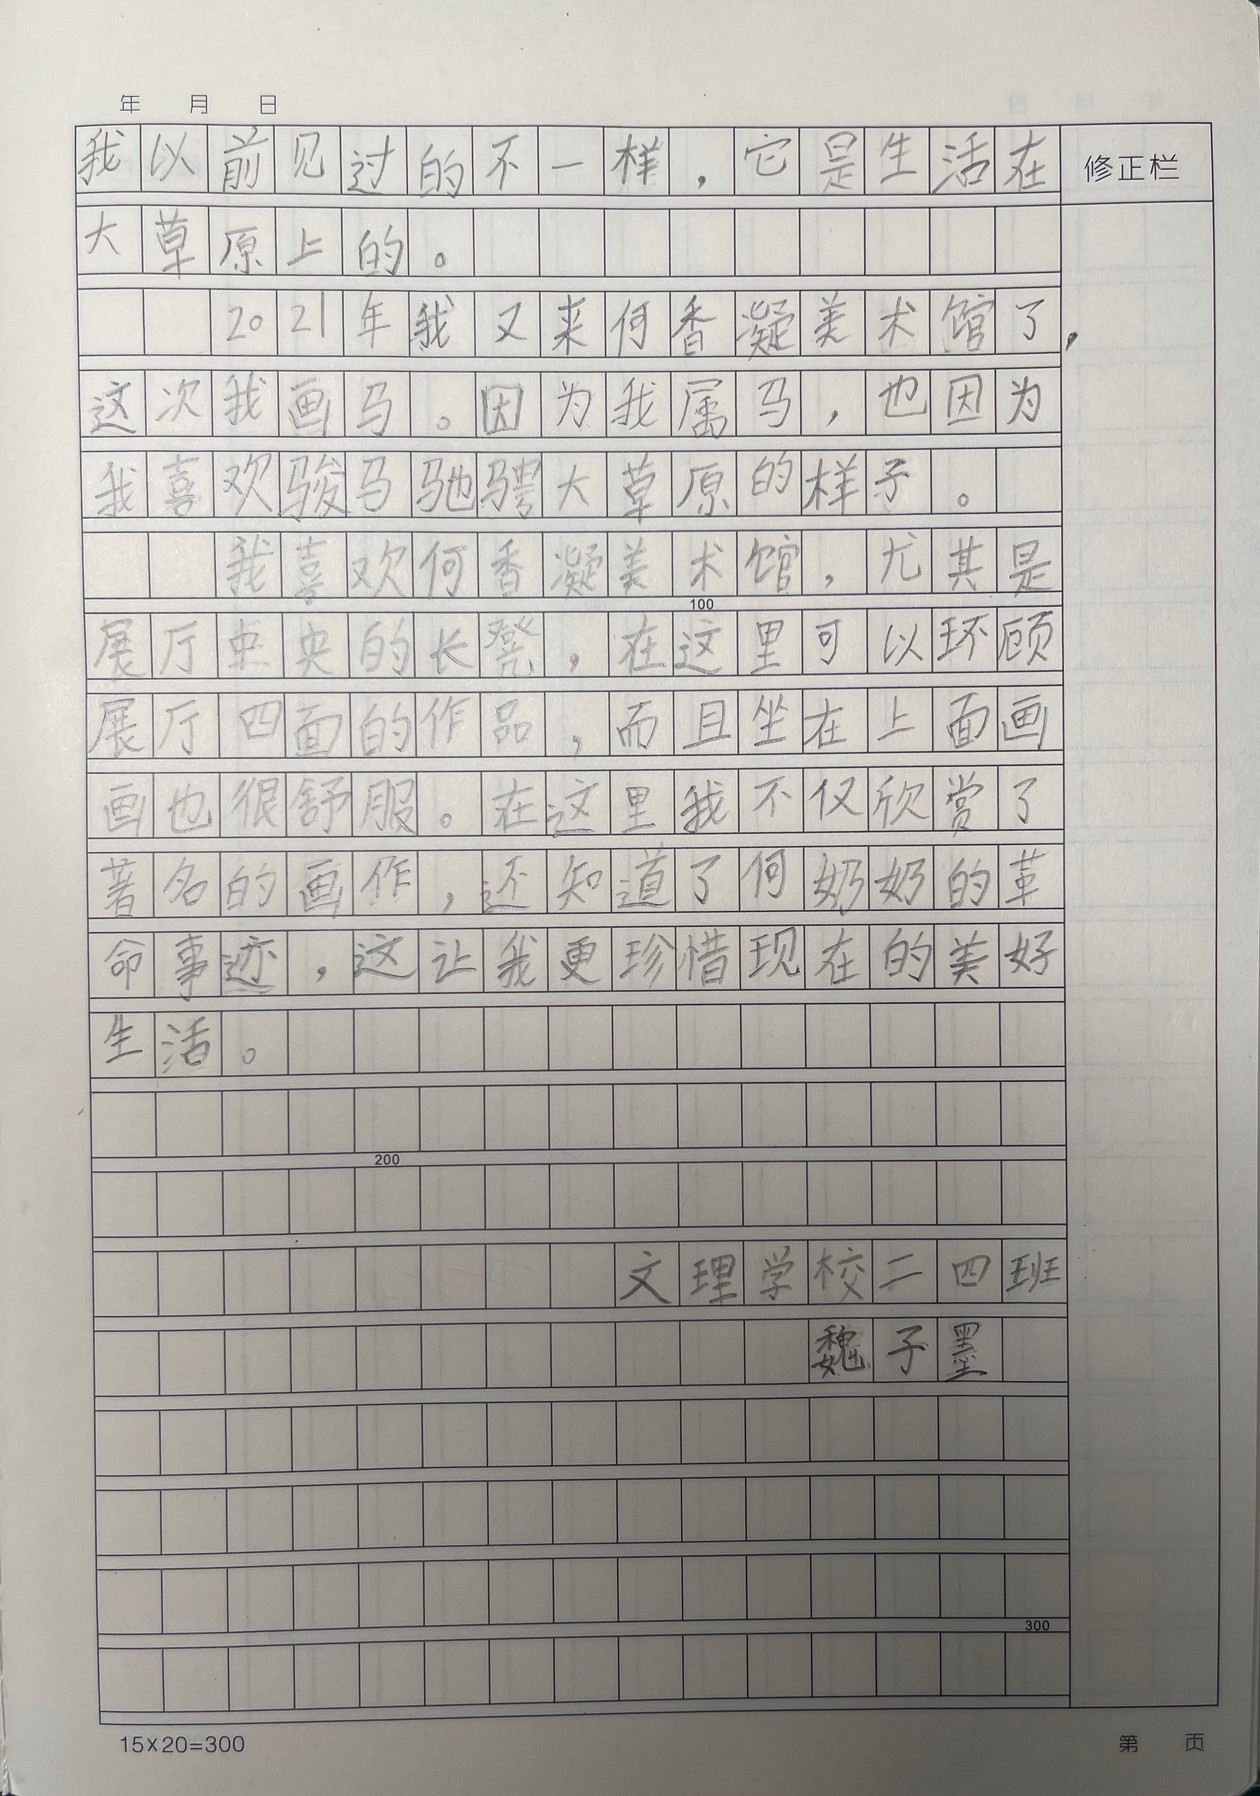 年 月 日
我以前见过的不一样，它是生活在
修正栏
大草原上的。
2021年我又来何香凝美术馆了，
这次我画马。因为我属马，也因为
我喜欢骏马驰骋大草原的样子。
我喜欢何香凝美术馆，尤其是
100
展厅中央的长凳，在这里可以环顾
展厅四面的作品，而且坐在上面画
画也很舒服。在这里我不仅欣赏了
著名的画作，还知道了何奶奶的革
命事迹，这让我更珍惜现在的美好
生活。
200
文理学校二四班
魏子墨
300
15×20=300
第 页